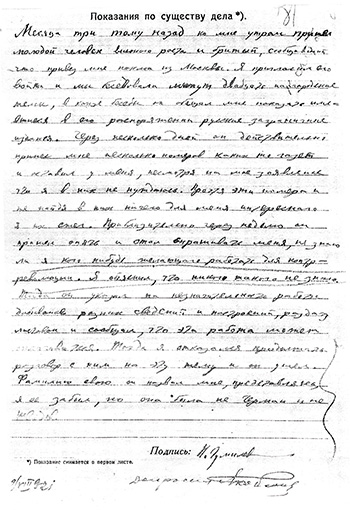 Показания по существу дела *).
81
Месяца три тому назад ко мне утром пришел
молодой человек высокого роста и бритый, сообщивший
что привез мне поклон из Москвы. Я пригласил его
войти и мы беседовали минут двадцать на городские
темы, в конце беседы он обещал мне показать имев-
шиеся в его распоряжении русские заграничные
издания. Через несколько дней он действительно
принес мне несколько номеров каких то газет
и оставил у меня, несмотря на мое заявление
что я в них не нуждаюсь. Прочтя эти номера и
не найдя в них ничего для меня интересного
я их сжег. Приблизительно через неделю он
пришел опять и стал спрашивать меня, не знаю
ли я кого нибудь желающего работать для контр-
революции. Я объяснил, что никого такого не знаю.
Тогда он указал на незначительность работы
добывание разных сведений и настроений, раздачу
листовок и сообщал, что эта работа может
Тогда я отказался продолжать
разговор с ним на эту тему и он ушел.
Фамилию свою он назвал мне, представляясь,
я ее забыл, но она была не Герман и не
Подпись: Н. Гумилев
*) Показание снимается в первом листе.
допросил